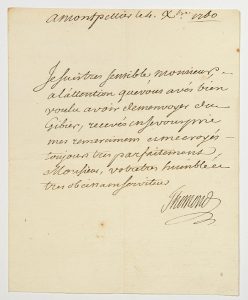 a montpellier le 4. Xbre 1760
Je suis tres sensible, monsieur,
a l'attention que vous avés bien
voulu avoir de m'envoyer du
Gibier, recevés en je vous prie
mes remerciments et me croyés
toujours tres parfaitement
Monsieur, votre tres humble et
tres obeissant serviteur
Thomond